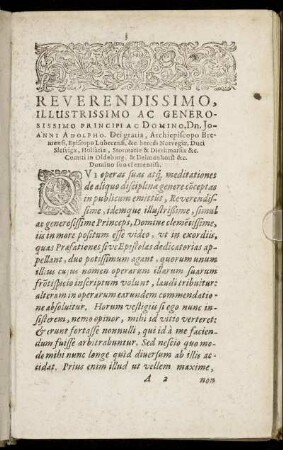 REVERENDISSIMO,
ILLUSTRISSIMO AC GENERO-
SISSIMO PRINCIPI AC DOMINO, Dn. JO-
ANNI ADOLPHO, Dei gratia, Archiepiscopo Bre-
mensi, Episcopo Lubecensi, & hæredi Norvegiæ, Duci
Slesvigæ, Holsatiæ, Stormariæ & Dietmarsiæ &c.
Comiti in Oldeburg, & Delmenhorst &c.
Domino suo clementiss.
QUI operas suas atq́; meditationes
de aliquo disciplinæ genere cōceptas
in publicum emittūt, Reverendis-
sime, idemque illustrissime, simul
ac generosissime Princeps, Domine clemētissime,
iis in more positum esse video, ut in exordiis,
quas Præfationes sive Epistolas dedicatorias ap-
pellant, duo potissimum agant, quorum unum
illius cu; us nomen operarum illarum suarum
frōtispicio inscriptum volunt, laudi tribuitur:
alterum in operarum earundem commendatio-
ne absolvitur. Horum vestigiis si ego nunc in-
sisterem, nemo opinor, mihi id vitio verteret:
& erunt fortasse nonnulli, qui id à me facien-
dum fuisse arbitrabuntur. Sed nescio quo mo-
do mihi nunc longe quid diversum ab illis ac-
cidat. Prius enim illud ut vellem maxime,
A 2 non